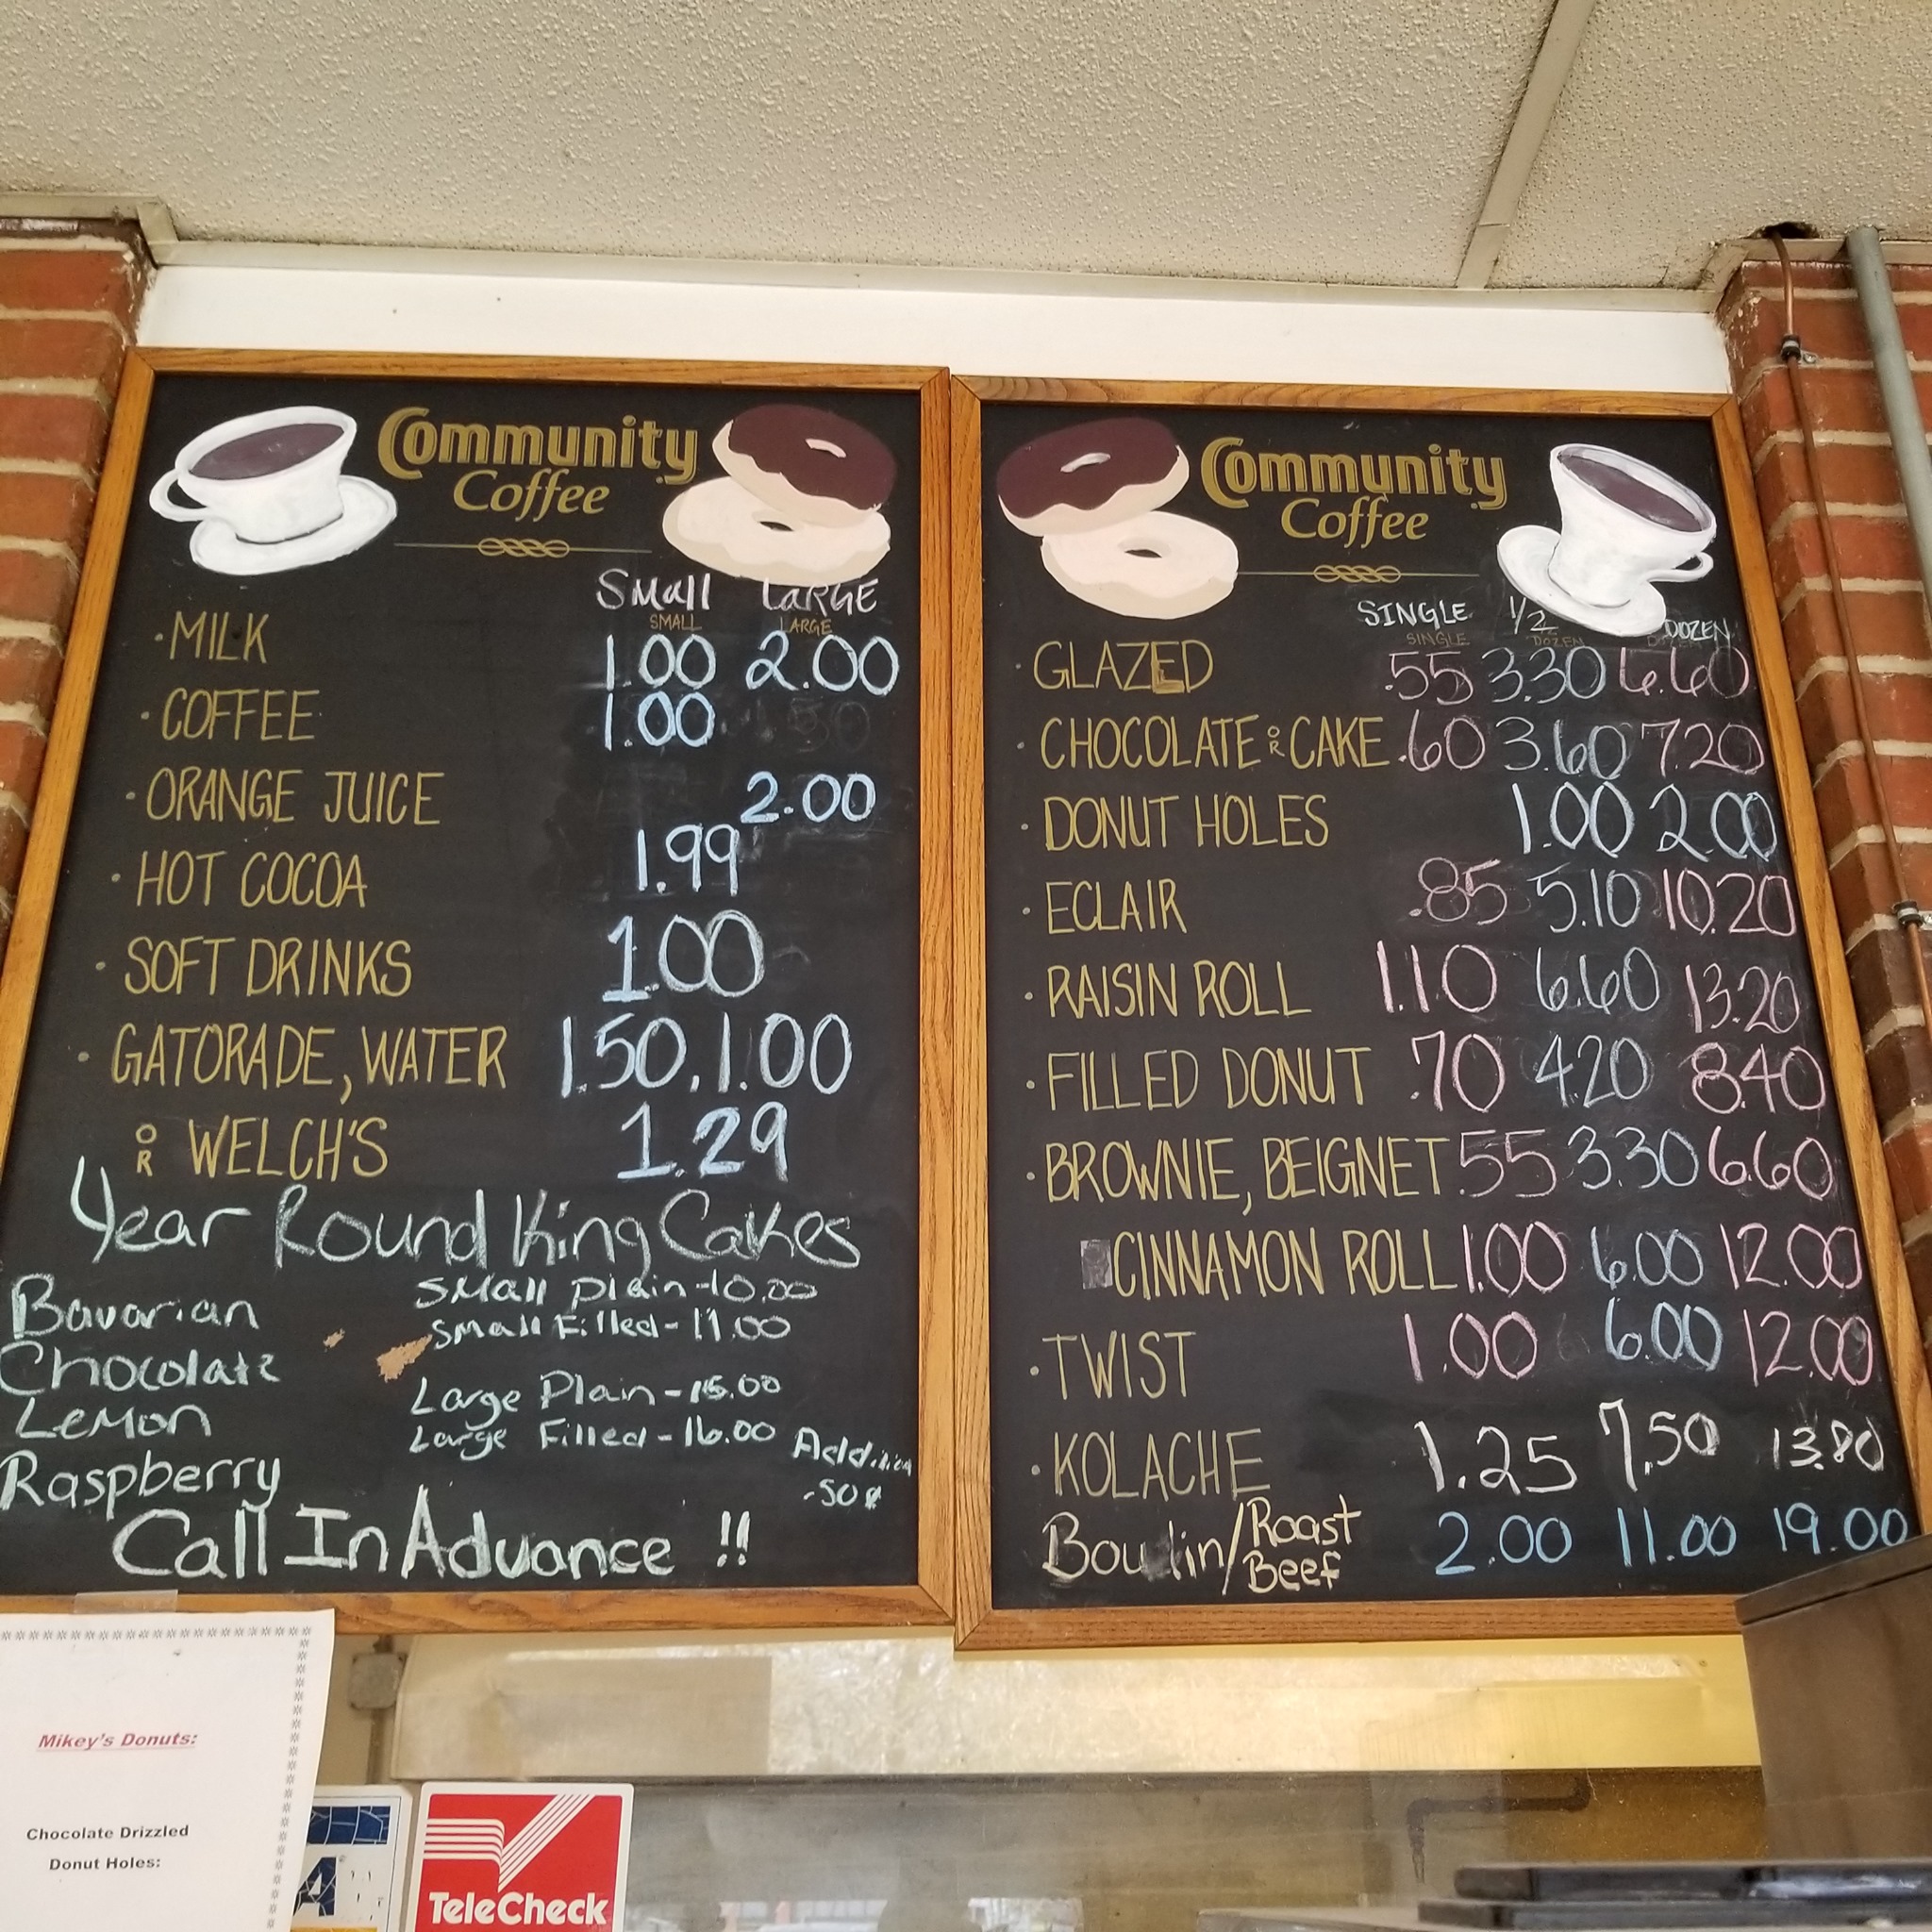 Community
Coffee
Small LARGE
SMALL LARGE
· MILK 1.00 2.00
· COFFEE 1.00
· ORANGE JUICE 2.00
· HOT COCOA 1.99
· SOFT DRINKS 1.00
· GATORADE, WATER 1.50, 1.00
OR WELCH'S 1.29
Year Round King Cakes
Bavarian
Chocolate
Lemon
Raspberry
Small Plain - 10.00
Small Filled - 11.00
Large Plain - 15.00
Large Filled - 16.00
.50¢
Call In Advance !!
Community
Coffee
SINGLE 1/2 DOZEN
SINGLE DOZEN
· GLAZED .55 3.30 6.60
· CHOCOLATE OR CAKE .60 3.60 7.20
· DONUT HOLES 1.00 2.00
· ECLAIR .85 5.10 10.20
· RAISIN ROLL 1.10 6.60 13.20
· FILLED DONUT .70 4.20 8.40
· BROWNIE, BEIGNET .55 3.30 6.60
CINNAMON ROLL 1.00 6.00 12.00
· TWIST 1.00 6.00 12.00
· KOLACHE 1.25 7.50 13.80
Boudin/Roast Beef 2.00 11.00 19.00
Mikey's Donuts:
Chocolate Drizzled
Donut Holes:
TeleCheck